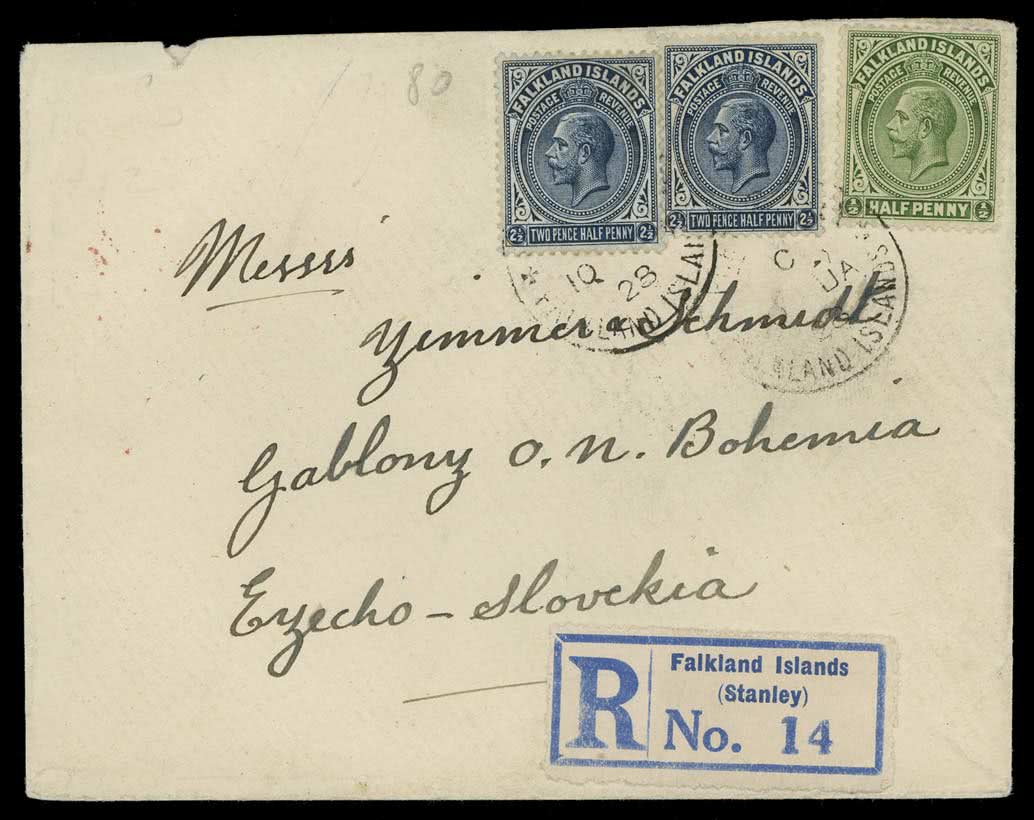 80
FALKLAND ISLANDS
POSTAGE REVENUE
2½ TWO PENCE HALF PENNY 2½
FALKLAND ISLANDS
POSTAGE REVENUE
2½ TWO PENCE HALF PENNY 2½
FALKLAND ISLANDS
POSTAGE REVENUE
½ HALF PENNY ½
10
28
FALKLAND ISLAN
C
JA
LAND ISLANDS
Messrs
Zimmer & Schmidt
Gablony o. n. Bohemia
Czecho - Slovekia
R
Falkland Islands
(Stanley)
No. 14